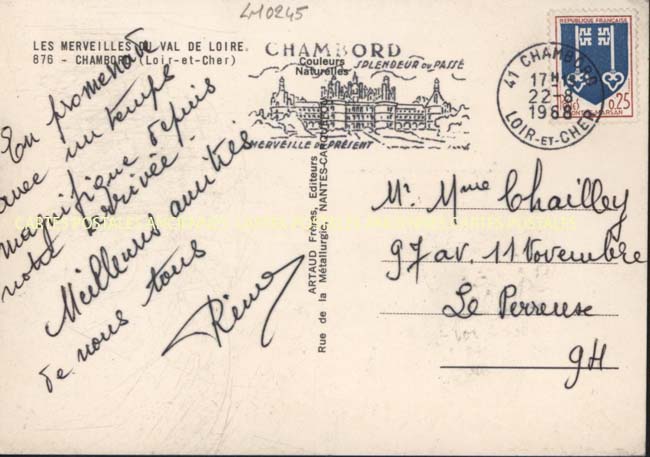 LM0245
LES MERVEILLES DU VAL DE LOIRE
876 - CHAMBORD (Loir-et-Cher)
CHAMBORD
SPLENDEUR DU PASSÉ
Couleurs
Naturelles
MERVEILLE DU PRÉSENT
REPUBLIQUE FRANÇAISE
0,25
MONT-DE-MARSAN
41 CHAMBORD
17H
22-8
1968
LOIR-ET-CHER
En promenade
avec un temps
magnifique depuis
notre arrivée.
Meilleures amitiés
de nous tous
Rémy
ARTAUD Frères, Editeurs
Rue de la Métallurgie, NANTES-CARQUEFOU
Mr. Mme Chailley
97 av. 11 Novembre
Le Perreuse
94